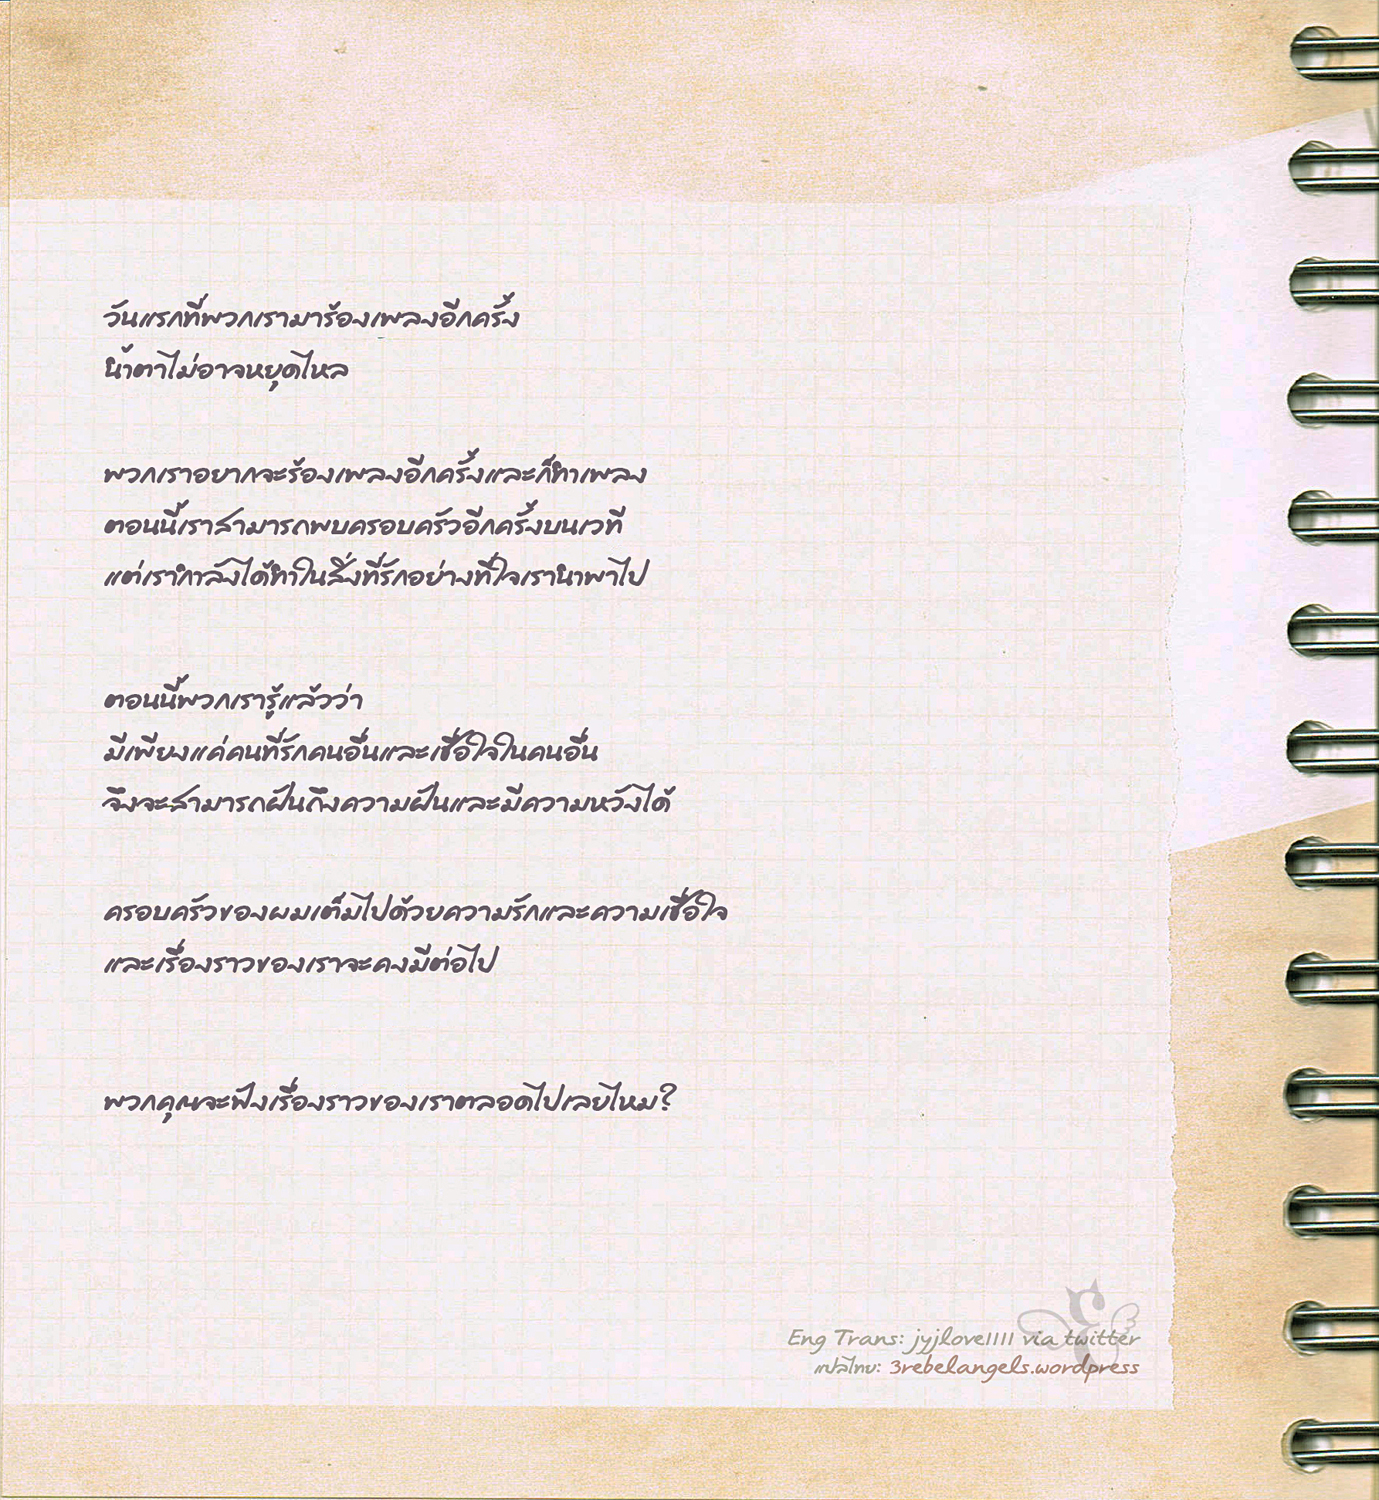 วันแรกที่พวกเรามาร้องเพลงอีกครั้ง
น้ำตาไม่อาจหยุดไหล
พวกเราอยากจะร้องเพลงอีกครั้งและก็ทำเพลง
ตอนนี้เราสามารถพบครอบครัวอีกครั้งบนเวที
แต่เรากำลังได้ทำในสิ่งที่รักอย่างที่ใจเรานำพาไป
ตอนนี้พวกเรารู้แล้วว่า
มีเพียงแค่คนที่รักคนอื่นและเชื่อใจในคนอื่น
จึงจะสามารถฝันถึงความฝันและมีความหวังได้
ครอบครัวของผมเต็มไปด้วยความรักและความเชื่อใจ
และเรื่องราวของเราจะคงมีต่อไป
พวกคุณจะฟังเรื่องราวของเราตลอดไปเลยไหม?
Eng Trans: jyjlove1111 via twitter
แปลไทย: 3rebelangels.wordpress